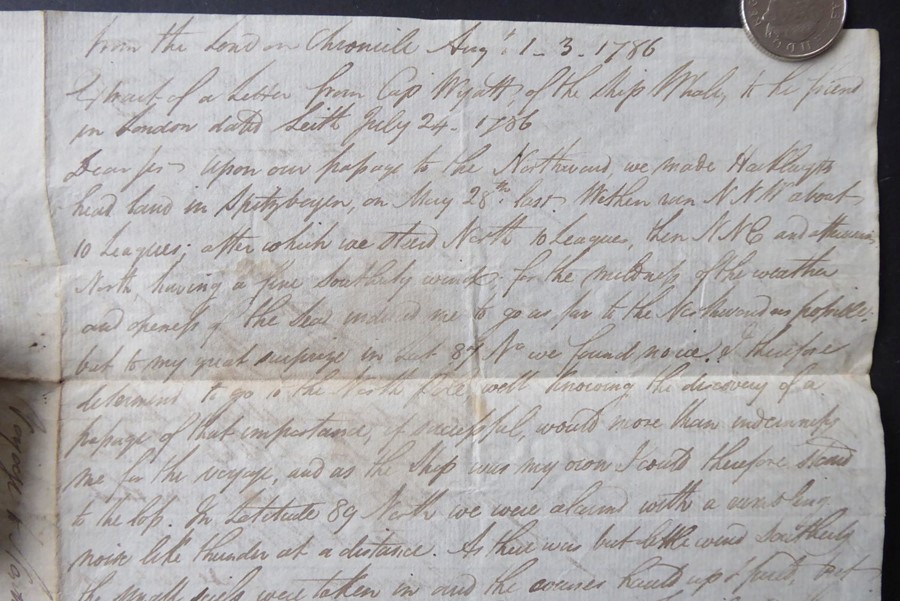 from the London Chronicle Augt. 1-3-1786
Extract of a Letter from Cap Wyatt, of the ship Whale, to his friend
in London dated Leith July 24-1786
Dear sir upon our passage to the Northward, we made Hackluyts
head land in Spitzbergen, on May 28th last. We then run NNW about
10 Leagues; after which we steerd North 10 Leagues, then NNE and
North, having a fine southerly wind; for the mildness of the weather
and openess of the sea induced me to go as far to the Northward as possible;
but to my great surprize in Lat 87 No we found no ice. I therefore
determind to go to the North Pole well knowing the discovery of a
passage of that importance, if successful, would more than indemnify
me for the voyage, and as the ship was my own I could therefore stand
to the loss. In Latitude 89 North we were alarmd with a rumbling
noise like thunder at a distance. As there was but little wind Southerly
the small sails were taken in and the courses hauld up & furld, but